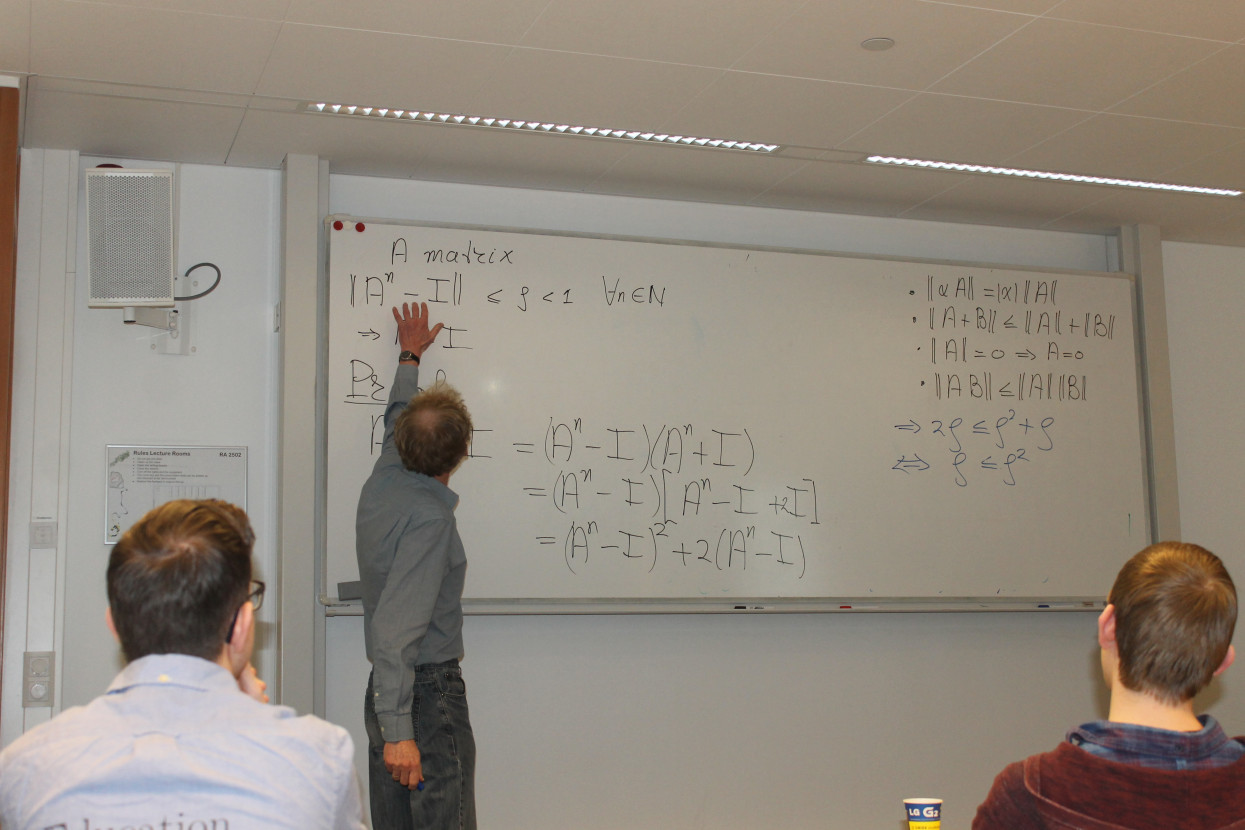 A matrix
||Aⁿ − I|| ≤ ρ < 1 ∀n ∈ ℕ
⇒ I
I = (Aⁿ − I)(Aⁿ + I)
= (Aⁿ − I)[Aⁿ − I + 2I]
= (Aⁿ − I)² + 2(Aⁿ − I)
• ||αA|| = |α| ||A||
• ||A + B|| ≤ ||A|| + ||B||
• ||A|| = 0 ⇒ A = 0
• ||AB|| ≤ ||A|| ||B||
⇒ 2ρ ≤ ρ² + ρ
⇔ ρ ≤ ρ²
Rules Lecture Rooms RA 2502
Education
LG G2